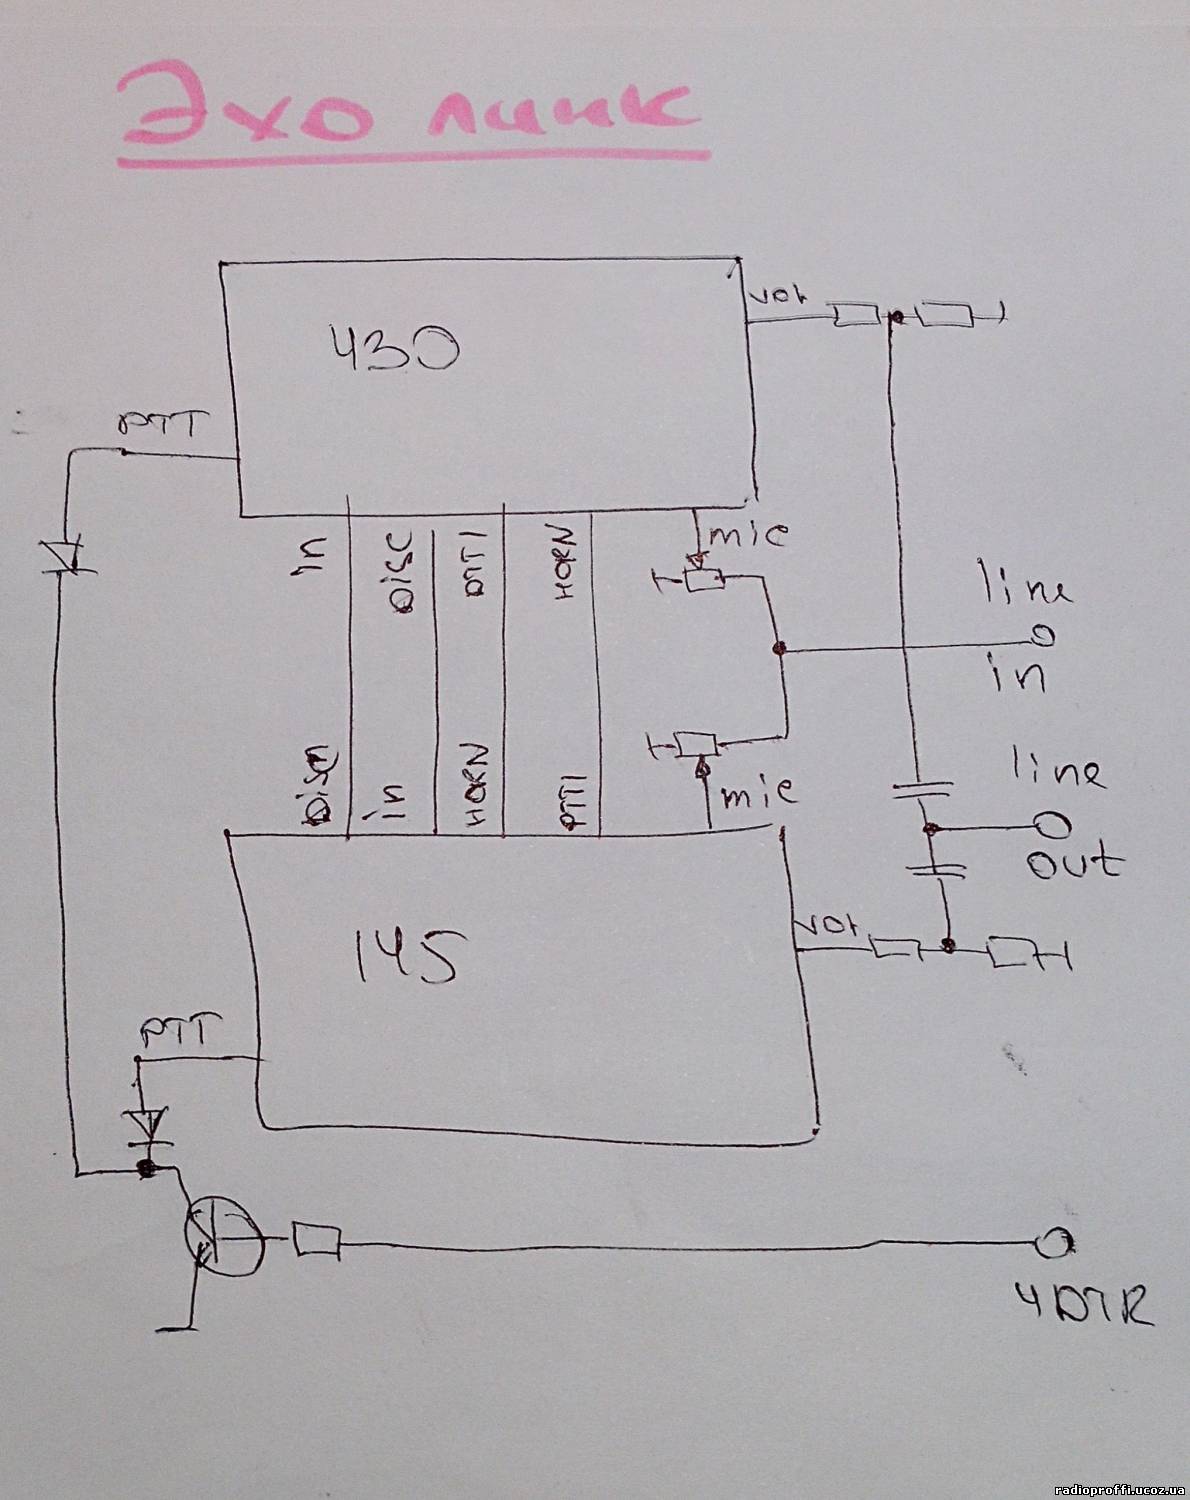 Эхо линк
430
vol
PTT
in
DISC
PTT1
HORN
mic
line
in
DISC
in
HORN
PTT1
mic
line
out
145
vol
PTT
4 DTR
radioproffi.ucoz.ua